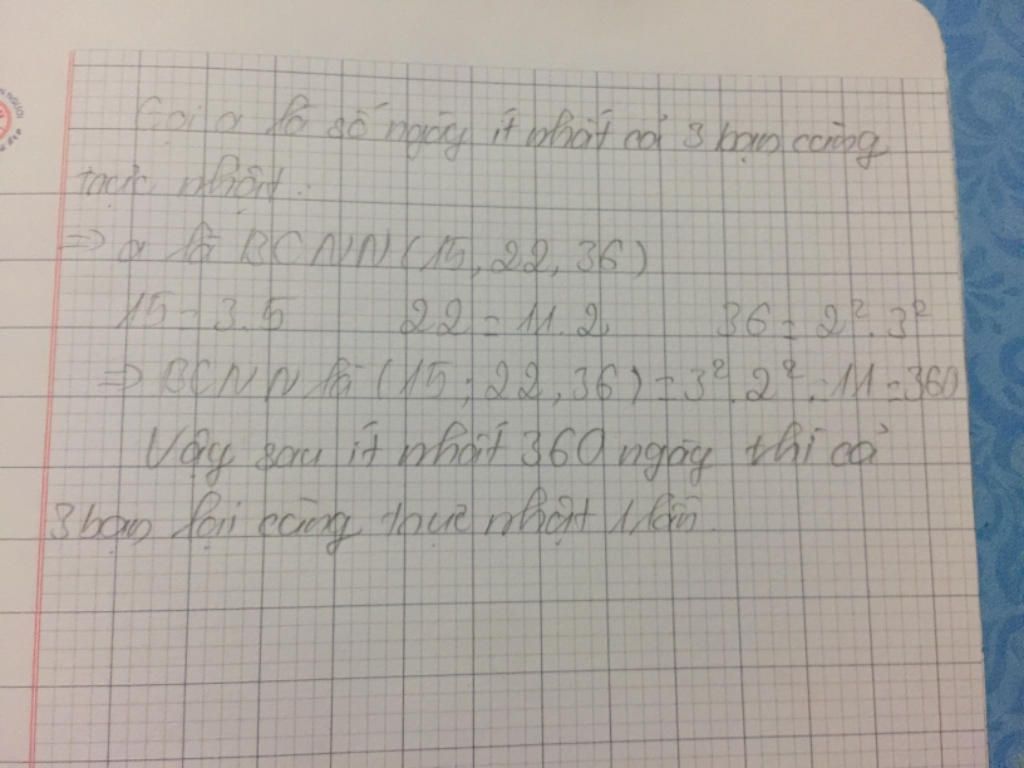 Gọi a là số ngày ít nhất cả 3 bạn cùng
trực nhật.
=> a là BCNN (15, 22, 36)
15 = 3.5 22 = 11.2 36 = 2².3²
=> BCNN là (15; 22, 36) = 3².2².11 = 360
Vậy sau ít nhất 360 ngày thì cả
3 bạn lại cùng trực nhật 1 lần.